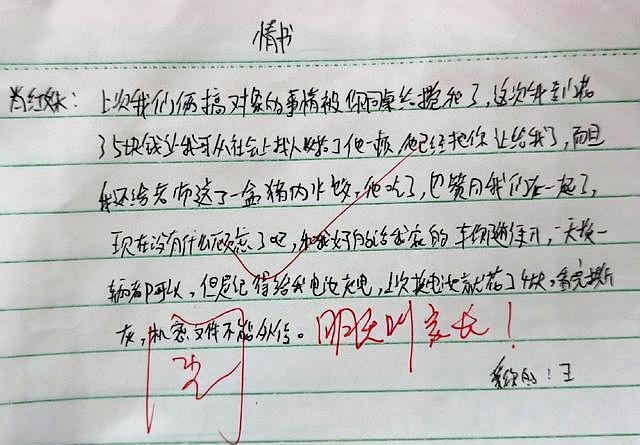 情书
肖红妹：上次我们俩搞对象的事情被你同桌给搅和了，这次我专门花
了5块钱让我哥从社会上找人收拾了他一顿，他已经把你让给我了，而且
我还给老师送了一盒猪肉水饺，他吃了，也赞同我们在一起了，
现在没有什么顾虑了吧，和我好的话我家的车你随便开，一天换一
辆都可以，但是记得给我电池充电，上次换电池就花了4块，看完撕
灰，机密文件不能外传。
明天叫家长！
爱你的：王